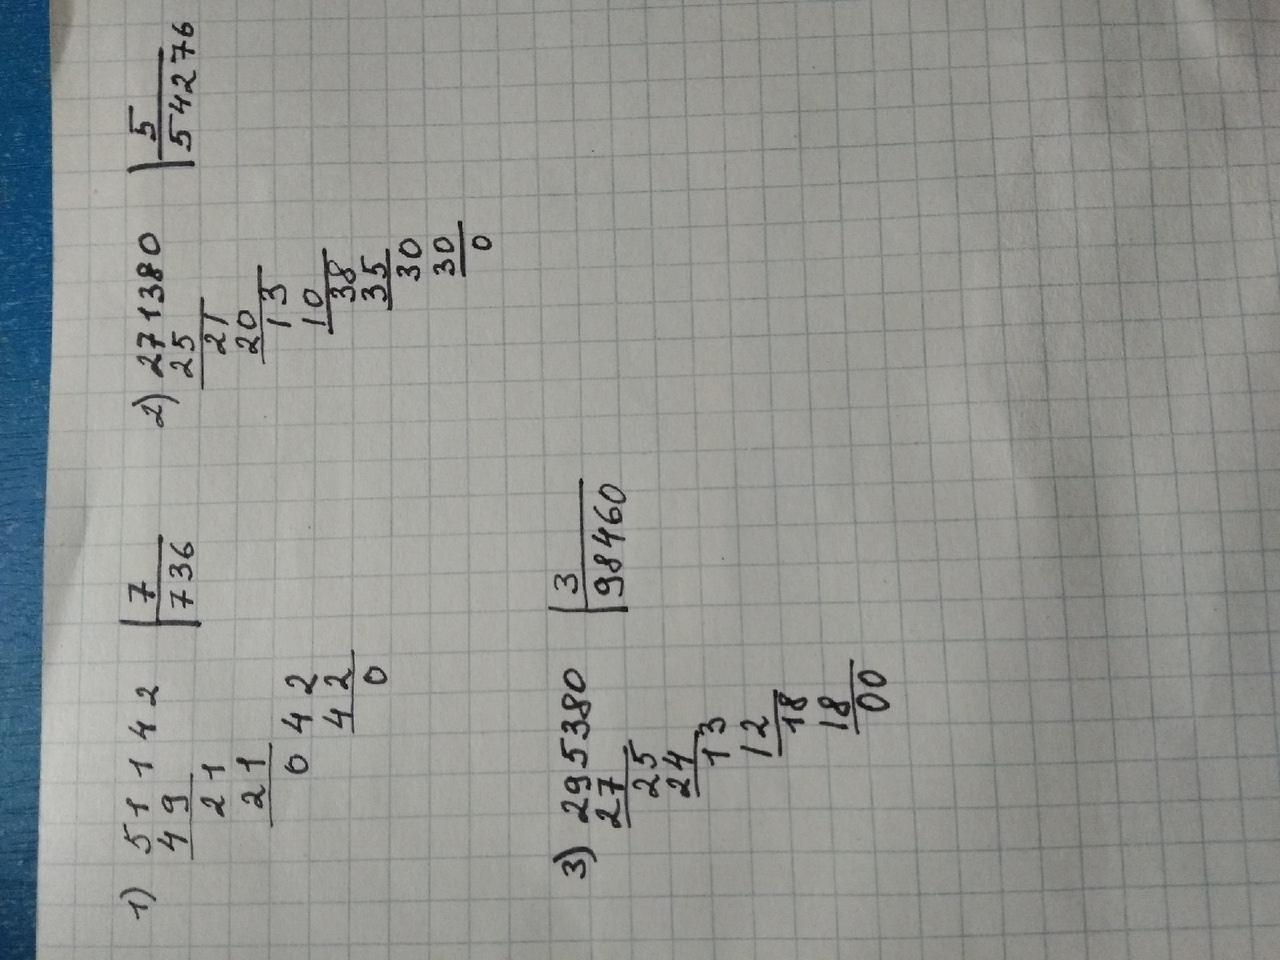 1) 51142 7
49 736
21
21
042
42
0
2) 271380 5
25 54276
21
20
13
10
38
35
30
30
0
3) 295380 3
27 98460
25
24
13
12
18
18
00